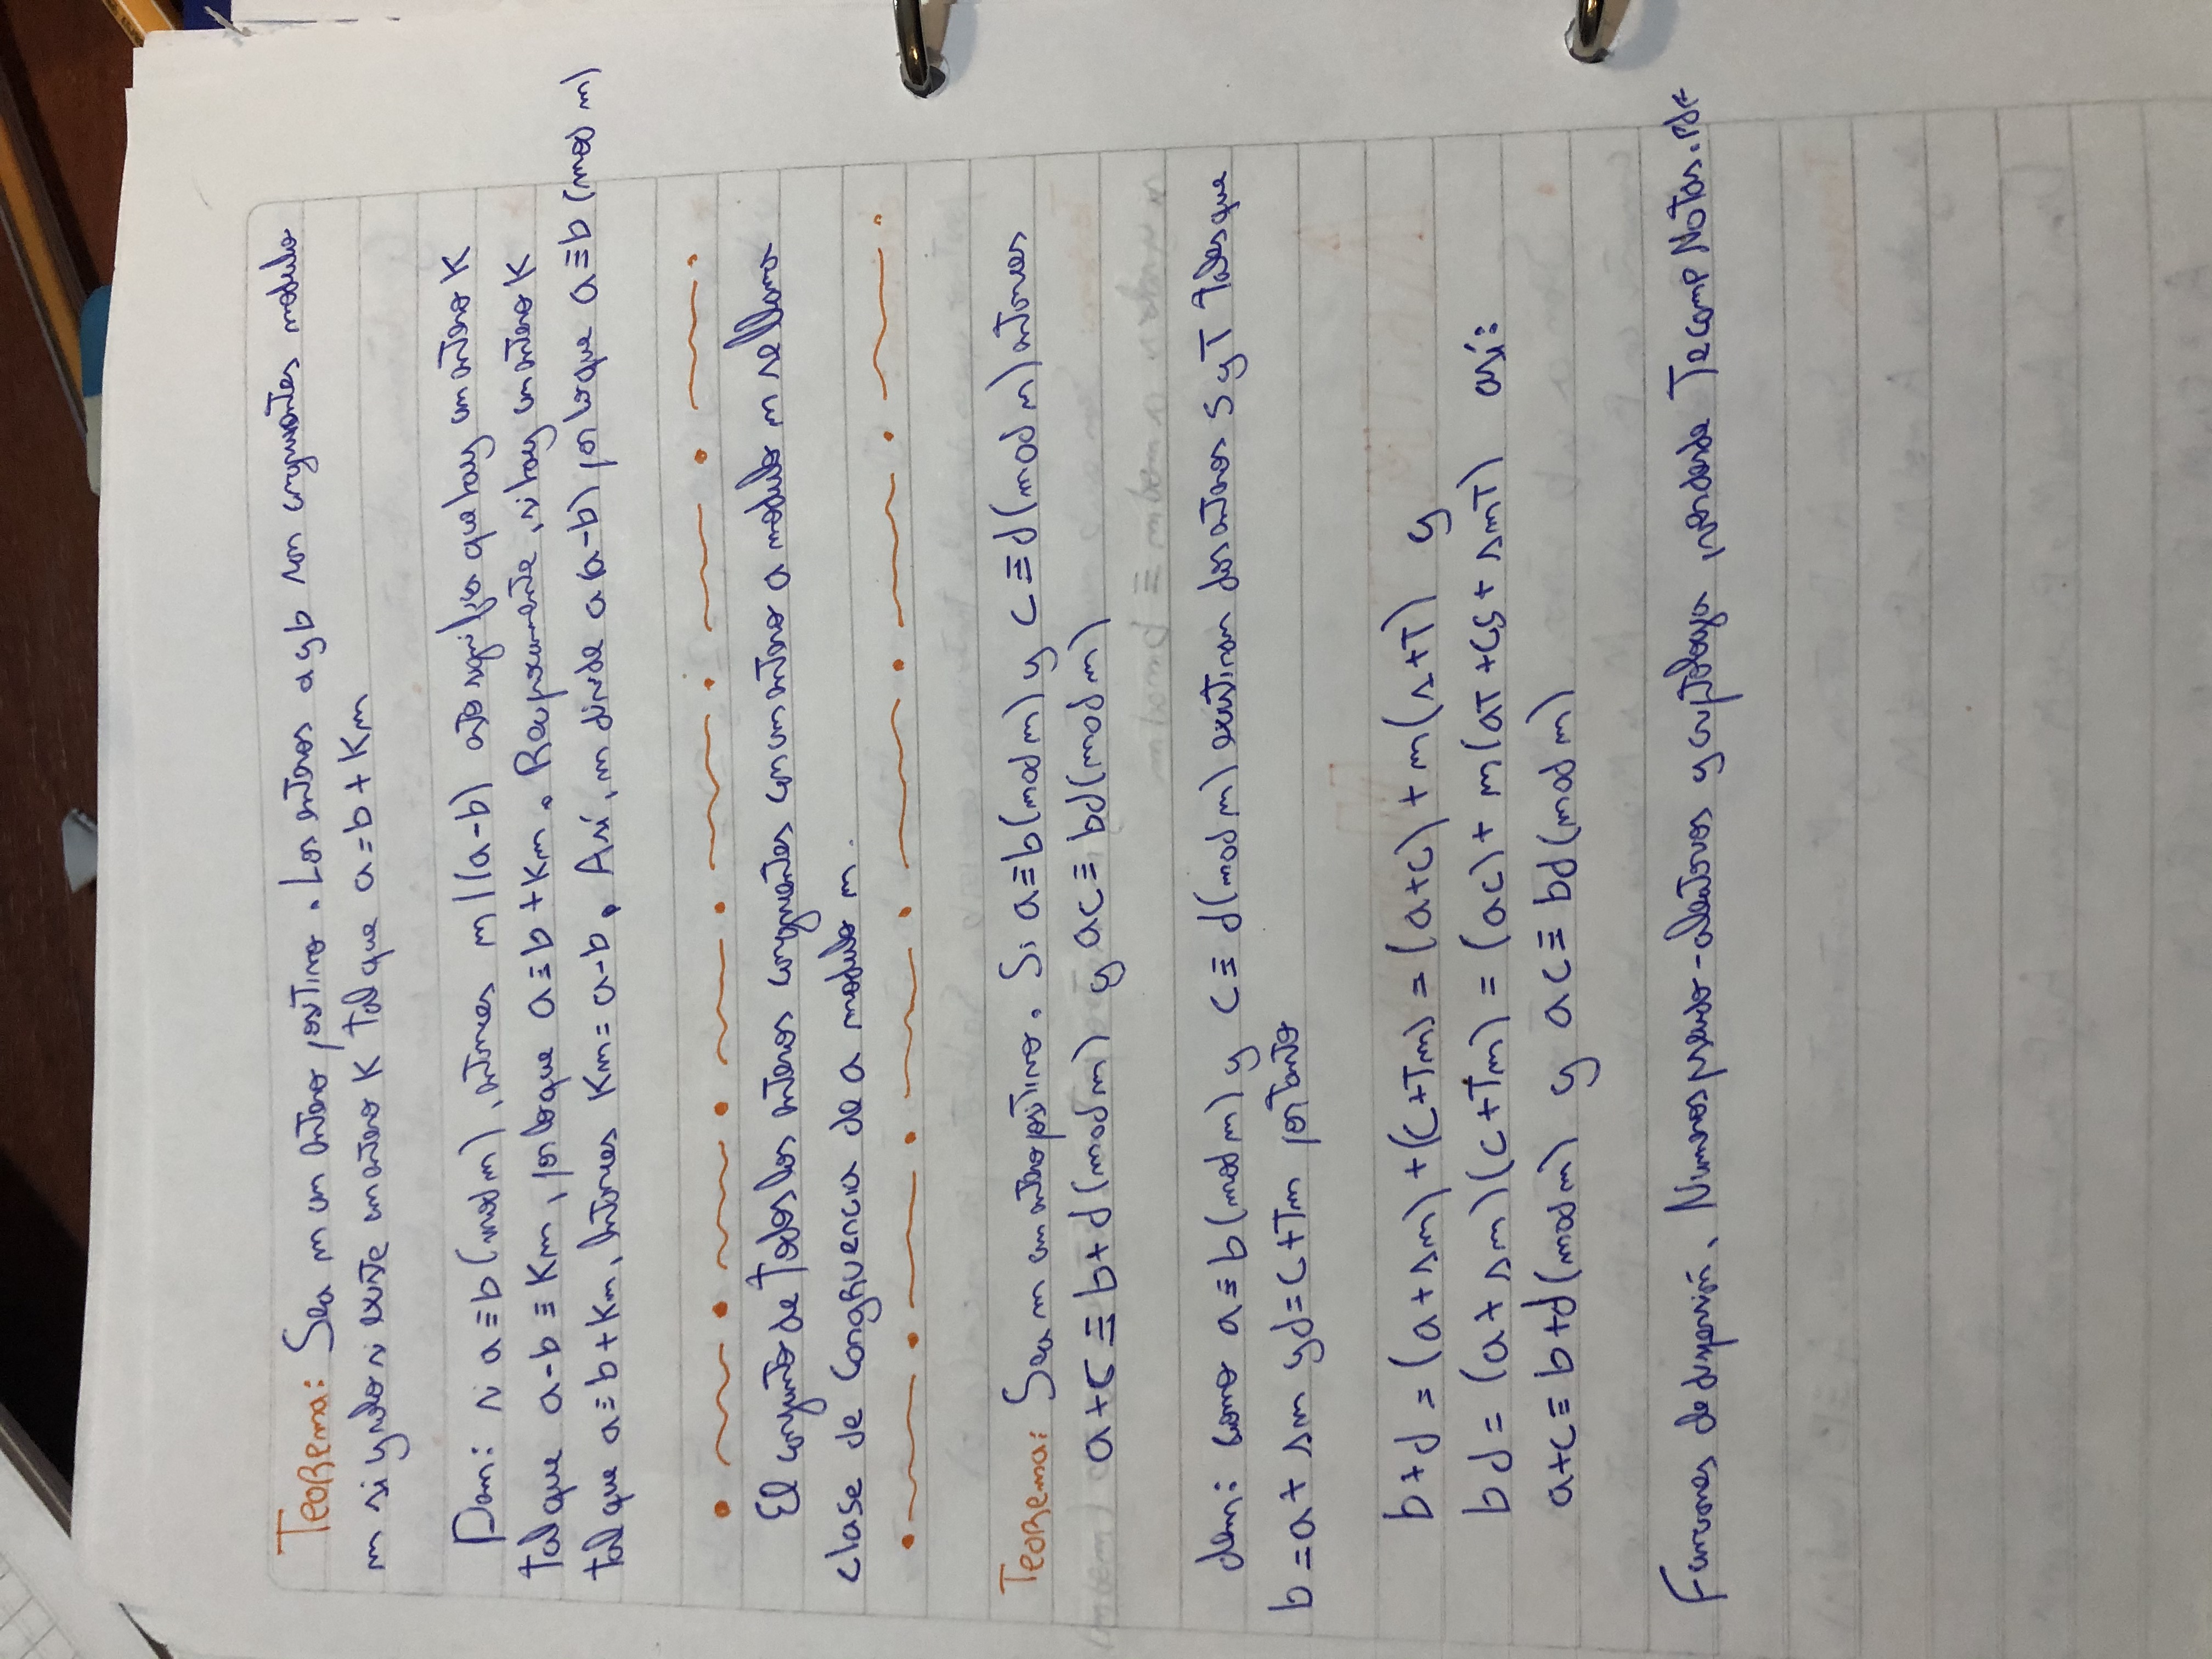 Teorema: Sea m un entero positivo. Los enteros a y b son congruentes modulo
m si y solo si existe un entero K tal que a = b + Km
Dem: si a ≡ b (mod m), entonces m | (a-b) esto significa que hay un entero K
tal que a-b ≡ Km, por lo que a ≡ b + Km. Reciprocamente, si hay un entero K
tal que a ≡ b + Km, entonces Km = a-b. Así, m divide a (a-b) por lo que a ≡ b (mod m)
El conjunto de todos los enteros congruentes con un entero a modulo m se llama
clase de congruencia de a modulo m.
Teorema: Sea m un entero positivo. Si a ≡ b (mod m) y c ≡ d (mod m) entonces
a+c ≡ b+d (mod m) y ac ≡ bd (mod m)
dem: como a ≡ b (mod m) y c ≡ d (mod m) existiran dos enteros S y T tales que
b = a + sm y d = c + Tm por tanto
b+d = (a+sm) + (c+Tm) = (a+c) + m(s+T) y
bd = (a+sm)(c+Tm) = (ac) + m(aT+cs+smT) así:
a+c ≡ b+d (mod m) y ac ≡ bd (mod m)
Funciones de dispersión, Numeros pseudo-aleatorios y criptologia, ver desde Tecomp Notas.pdf